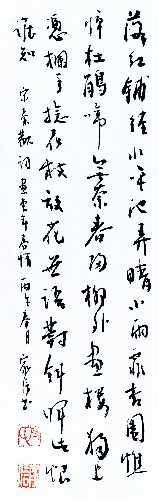 落红铺径水平池弄晴小雨霏霏杏园憔
悴杜鹃啼无奈春归柳外画楼独上
凭栏手捻花枝放花无语对斜晖此恨
谁知 宋秦观词画堂春春情 丙午春月 家